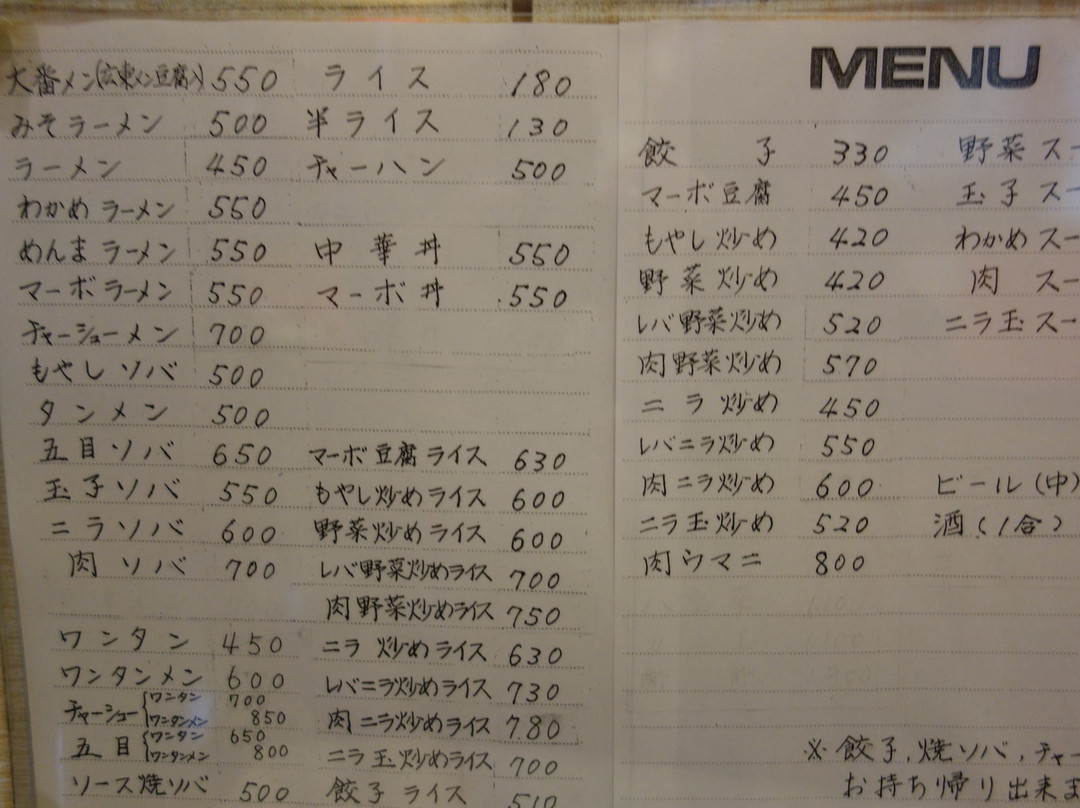 大番メン(広東メン豆腐入) 550
みそラーメン 500
ラーメン 450
わかめラーメン 550
めんまラーメン 550
マーボラーメン 550
チャーシューメン 700
もやしソバ 500
タンメン 500
五目ソバ 650
玉子ソバ 550
ニラソバ 600
肉ソバ 700
ワンタン 450
ワンタンメン 600
チャーシュー ワンタン 700
ワンタンメン 850
五目 ワンタン 650
ワンタンメン 800
ソース焼ソバ 500
ライス 180
半ライス 130
チャーハン 500
中華丼 550
マーボ丼 550
マーボ豆腐ライス 630
もやし炒めライス 600
野菜炒めライス 600
レバ野菜炒めライス 700
肉野菜炒めライス 750
ニラ炒めライス 630
レバニラ炒めライス 730
肉ニラ炒めライス 780
ニラ玉炒めライス 700
餃子ライス 510
MENU
餃子 330
マーボ豆腐 450
もやし炒め 420
野菜炒め 420
レバ野菜炒め 520
肉野菜炒め 570
ニラ炒め 450
レバニラ炒め 550
肉ニラ炒め 600
ニラ玉炒め 520
肉ウマニ 800
野菜スー
玉子スー
わかめスー
肉スー
ニラ玉スー
ビール(中)
酒(1合)
※餃子,焼ソバ,チャー
お持ち帰り出来ま